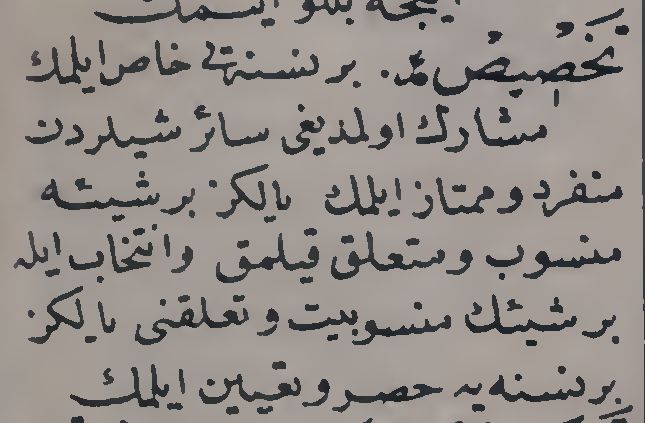 اینجه بللو ایتمك
تخصیص عر. بر نسنه‌یی خاص ایلمك
مشارك اولمدیغی سائر شیلردن
منفرد و ممتاز ایلمك یالكز بر شیئه
منسوب و متعلق قیلمق و انتخاب ایله
بر شیئك منسوبیت و تعلقنی یالكز
بر نسنه یه حصر و تعیین ایلمك